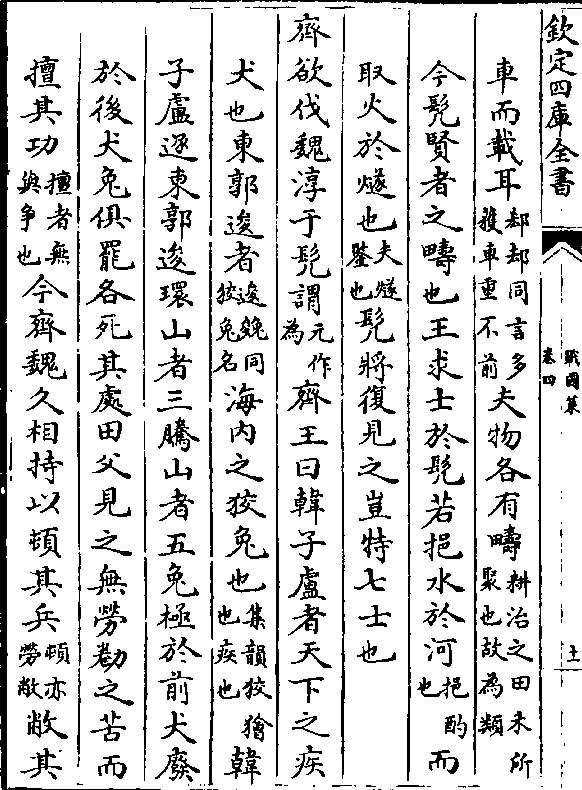 欽定四庫全書
戰國策
卷四
十一
車而載耳郄郄同言多穫車重不前夫物各有疇耕治之田禾所聚也故為類
今髠賢者之疇也王求士於髠若挹水於河挹酌也而
取火於燧也夫燧鑒也髠將復見之豈特七士也
齊欲伐魏淳于髠謂元作為齊王曰韓子盧者天下之疾
犬也東郭逡者逡㕙同狡兔名海內之狡兔也集韻狡獪也疾也韓
子盧逐東郭逡環山者三騰山者五兔極於前犬廢
於後犬兔俱罷各死其處田父見之無勞勌之苦而
擅其功擅者無與爭也今齊魏久相持以頓其兵頓亦勞敝敝其